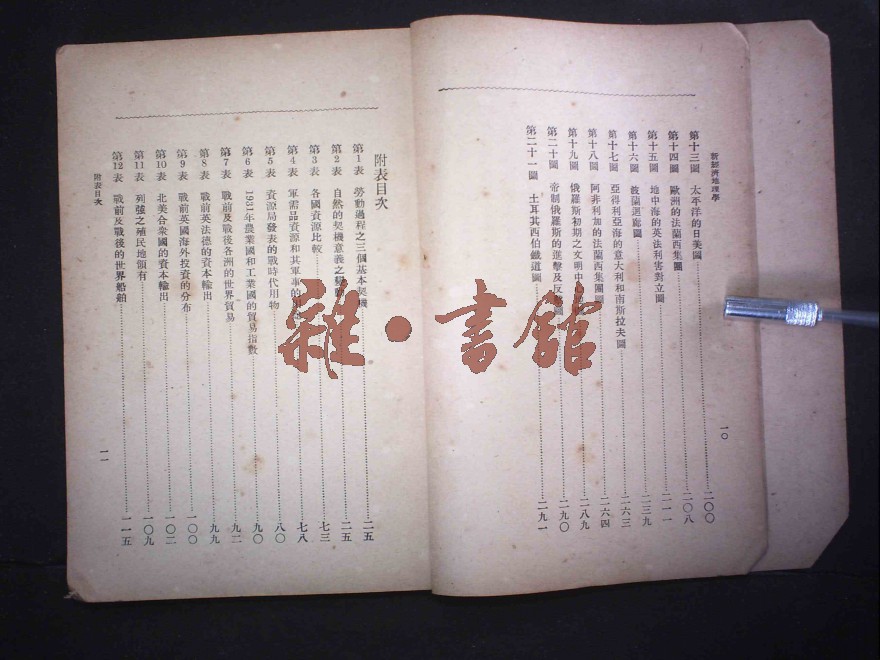 新經濟地理學
第十三圖 太平洋的日美圖……二〇〇
第十四圖 歐洲的法蘭西集團……二〇八
第十五圖 地中海的英法利害對立圖……二一一
第十六圖 波蘭迴廊圖……二三九
第十七圖 亞得利亞海的意大利和南斯拉夫圖……二六三
第十八圖 阿非利加的法蘭西集團圖……二六四
第十九圖 俄羅斯初期之文明中……二八九
第二十圖 帝制俄羅斯的進擊及反……二九〇
第二十一圖 土耳其西伯鐵道圖……二九一
一〇
附表目次
第1表 勞動過程之三個基本契機……二五
第2表 自然的契機意義之變動……二五
第3表 各國資源比較……七三
第4表 軍需品資源和其軍事的……七八
第5表 資源局發表的戰時代用物……八〇
第6表 1931年農業國和工業國的貿易指數……九〇
第7表 戰前及戰後各洲的世界貿易……九二
第8表 戰前英法德的資本輸出……九九
第9表 戰前英國海外投資的分布……一〇〇
第10表 北美合衆國的資本輸出……一〇二
第11表 列强之殖民地領有……一〇九
第12表 戰前及戰後的世界船舶……一一五
附表目次
一一
雜·書館